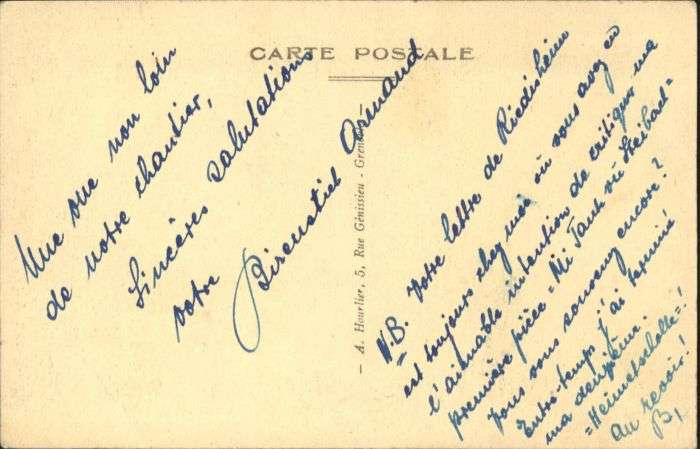 CARTE POSTALE
Une vue non loin
de notre chantier,
Sincères salutations
votre
Armand
— A. Hourlier, 5, Rue Génissieu - Grenoble —
N.B. Votre lettre de Riedisheim
est toujours chez moi où vous avez eu
l'aimable intention de critiquer ma
première pièce = Mi Tanta
Vous vous souvenez encore?
Entre-temps j'ai terminé
ma deuxième.
au revoir!
B.